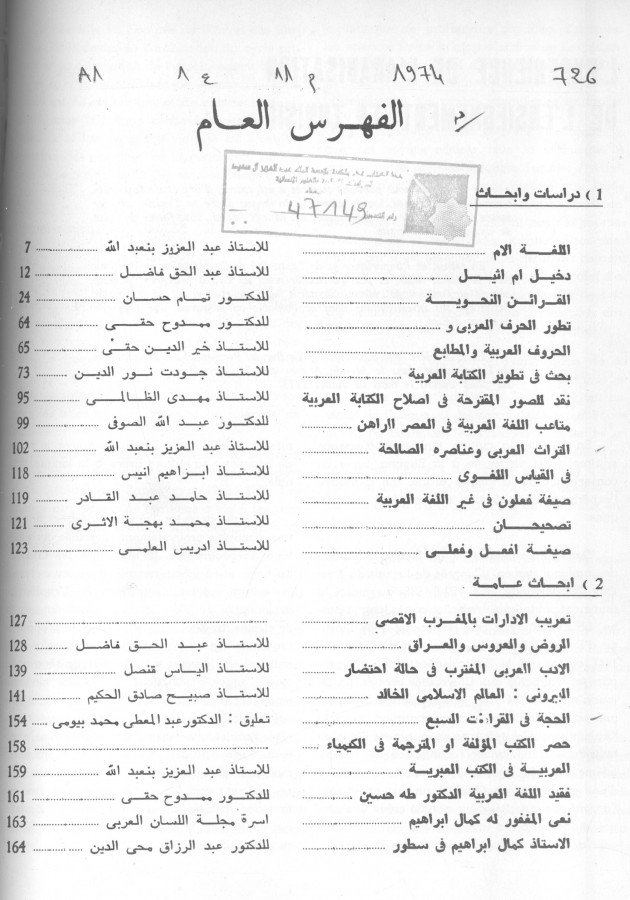 726 1974 م 11 ع 1 A1
الفهرس العام
رقم التسجيل 47149
1 ) دراسات وابحاث
اللغة الام للاستاذ عبد العزيز بنعبد الله 7
دخيل ام اثيل للاستاذ عبد الحق فاضل 12
القرائن النحوية للدكتور تمام حسان 24
تطور الحرف العربى و للدكتور ممدوح حقى 64
الحروف العربية والمطابع للاستاذ خير الدين حقى 65
بحث فى تطوير الكتابة العربية للاستاذ جودت نور الدين 73
نقد للصور المقترحة فى اصلاح الكتابة العربية للاستاذ مهدى الظالمى 95
متاعب اللغة العربية فى العصر الراهن للدكتور عبد الله الصوفى 99
التراث العربى وعناصره الصالحة للاستاذ عبد العزيز بنعبد الله 102
فى القياس اللغوى للاستاذ ابراهيم انيس 118
صيغة فعلون فى غير اللغة العربية للاستاذ حامد عبد القادر 119
تصحيحان للاستاذ محمد بهجة الاثرى 121
صيغة افعل وفعلى للاستاذ ادريس العلمى 123
2 ) ابحاث عامة
تعريب الادارات بالمغرب الاقصى 127
الروض والعروس والعراق للاستاذ عبد الحق فاضل 128
الادب العربى المغترب فى حالة احتضار للاستاذ الياس قنصل 139
البيرونى : العالم الاسلامى الخالد للاستاذ صبيح صادق الحكيم 141
الحجة فى القراءت السبع تعليق : الدكتور عبد المعطى محمد بيومى 154
حصر الكتب المؤلفة او المترجمة فى الكيمياء 158
العربية فى الكتب العبرية للاستاذ عبد العزيز بنعبد الله 159
فقيد اللغة العربية الدكتور طه حسين للدكتور ممدوح حقى 161
نعى المغفور له كمال ابراهيم اسرة مجلة اللسان العربى 163
الاستاذ كمال ابراهيم فى سطور للدكتور عبد الرزاق محى الدين 164